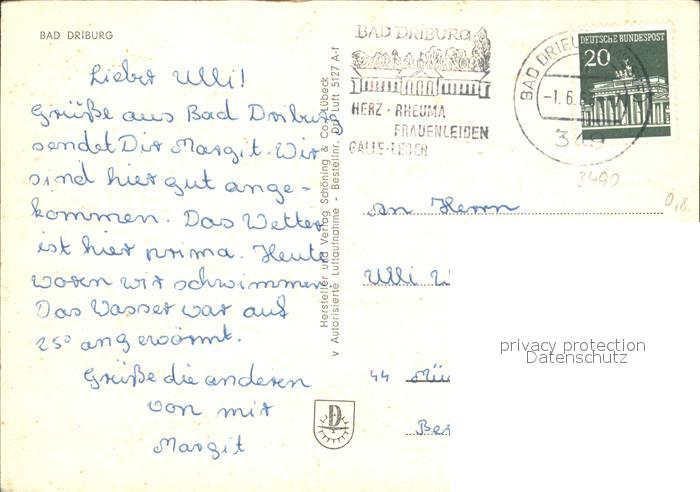 BAD DRIBURG
Lieber Ulli!
Grüße aus Bad Driburg
sendet Dir Margit. Wir
sind hier gut ange-
kommen. Das Wetter
ist hier prima. Heute
waren wir schwimmen
Das Wasser war auf
25° angewärmt.
Grüße die anderen
von mir
Margit
Hersteller und Verlag Schöning & Co., Lübeck
Autorisierte Luftaufnahme - Bestellnr. Dri Luft 5127 A-f
BAD DRIBURG
HERZ · RHEUMA
FRAUENLEIDEN
GALLE-LEBER
BAD
-1.6.
349
DEUTSCHE BUNDESPOST
20
3490
0,8.
An Herrn
Ulli
44
privacy protection
Datenschutz